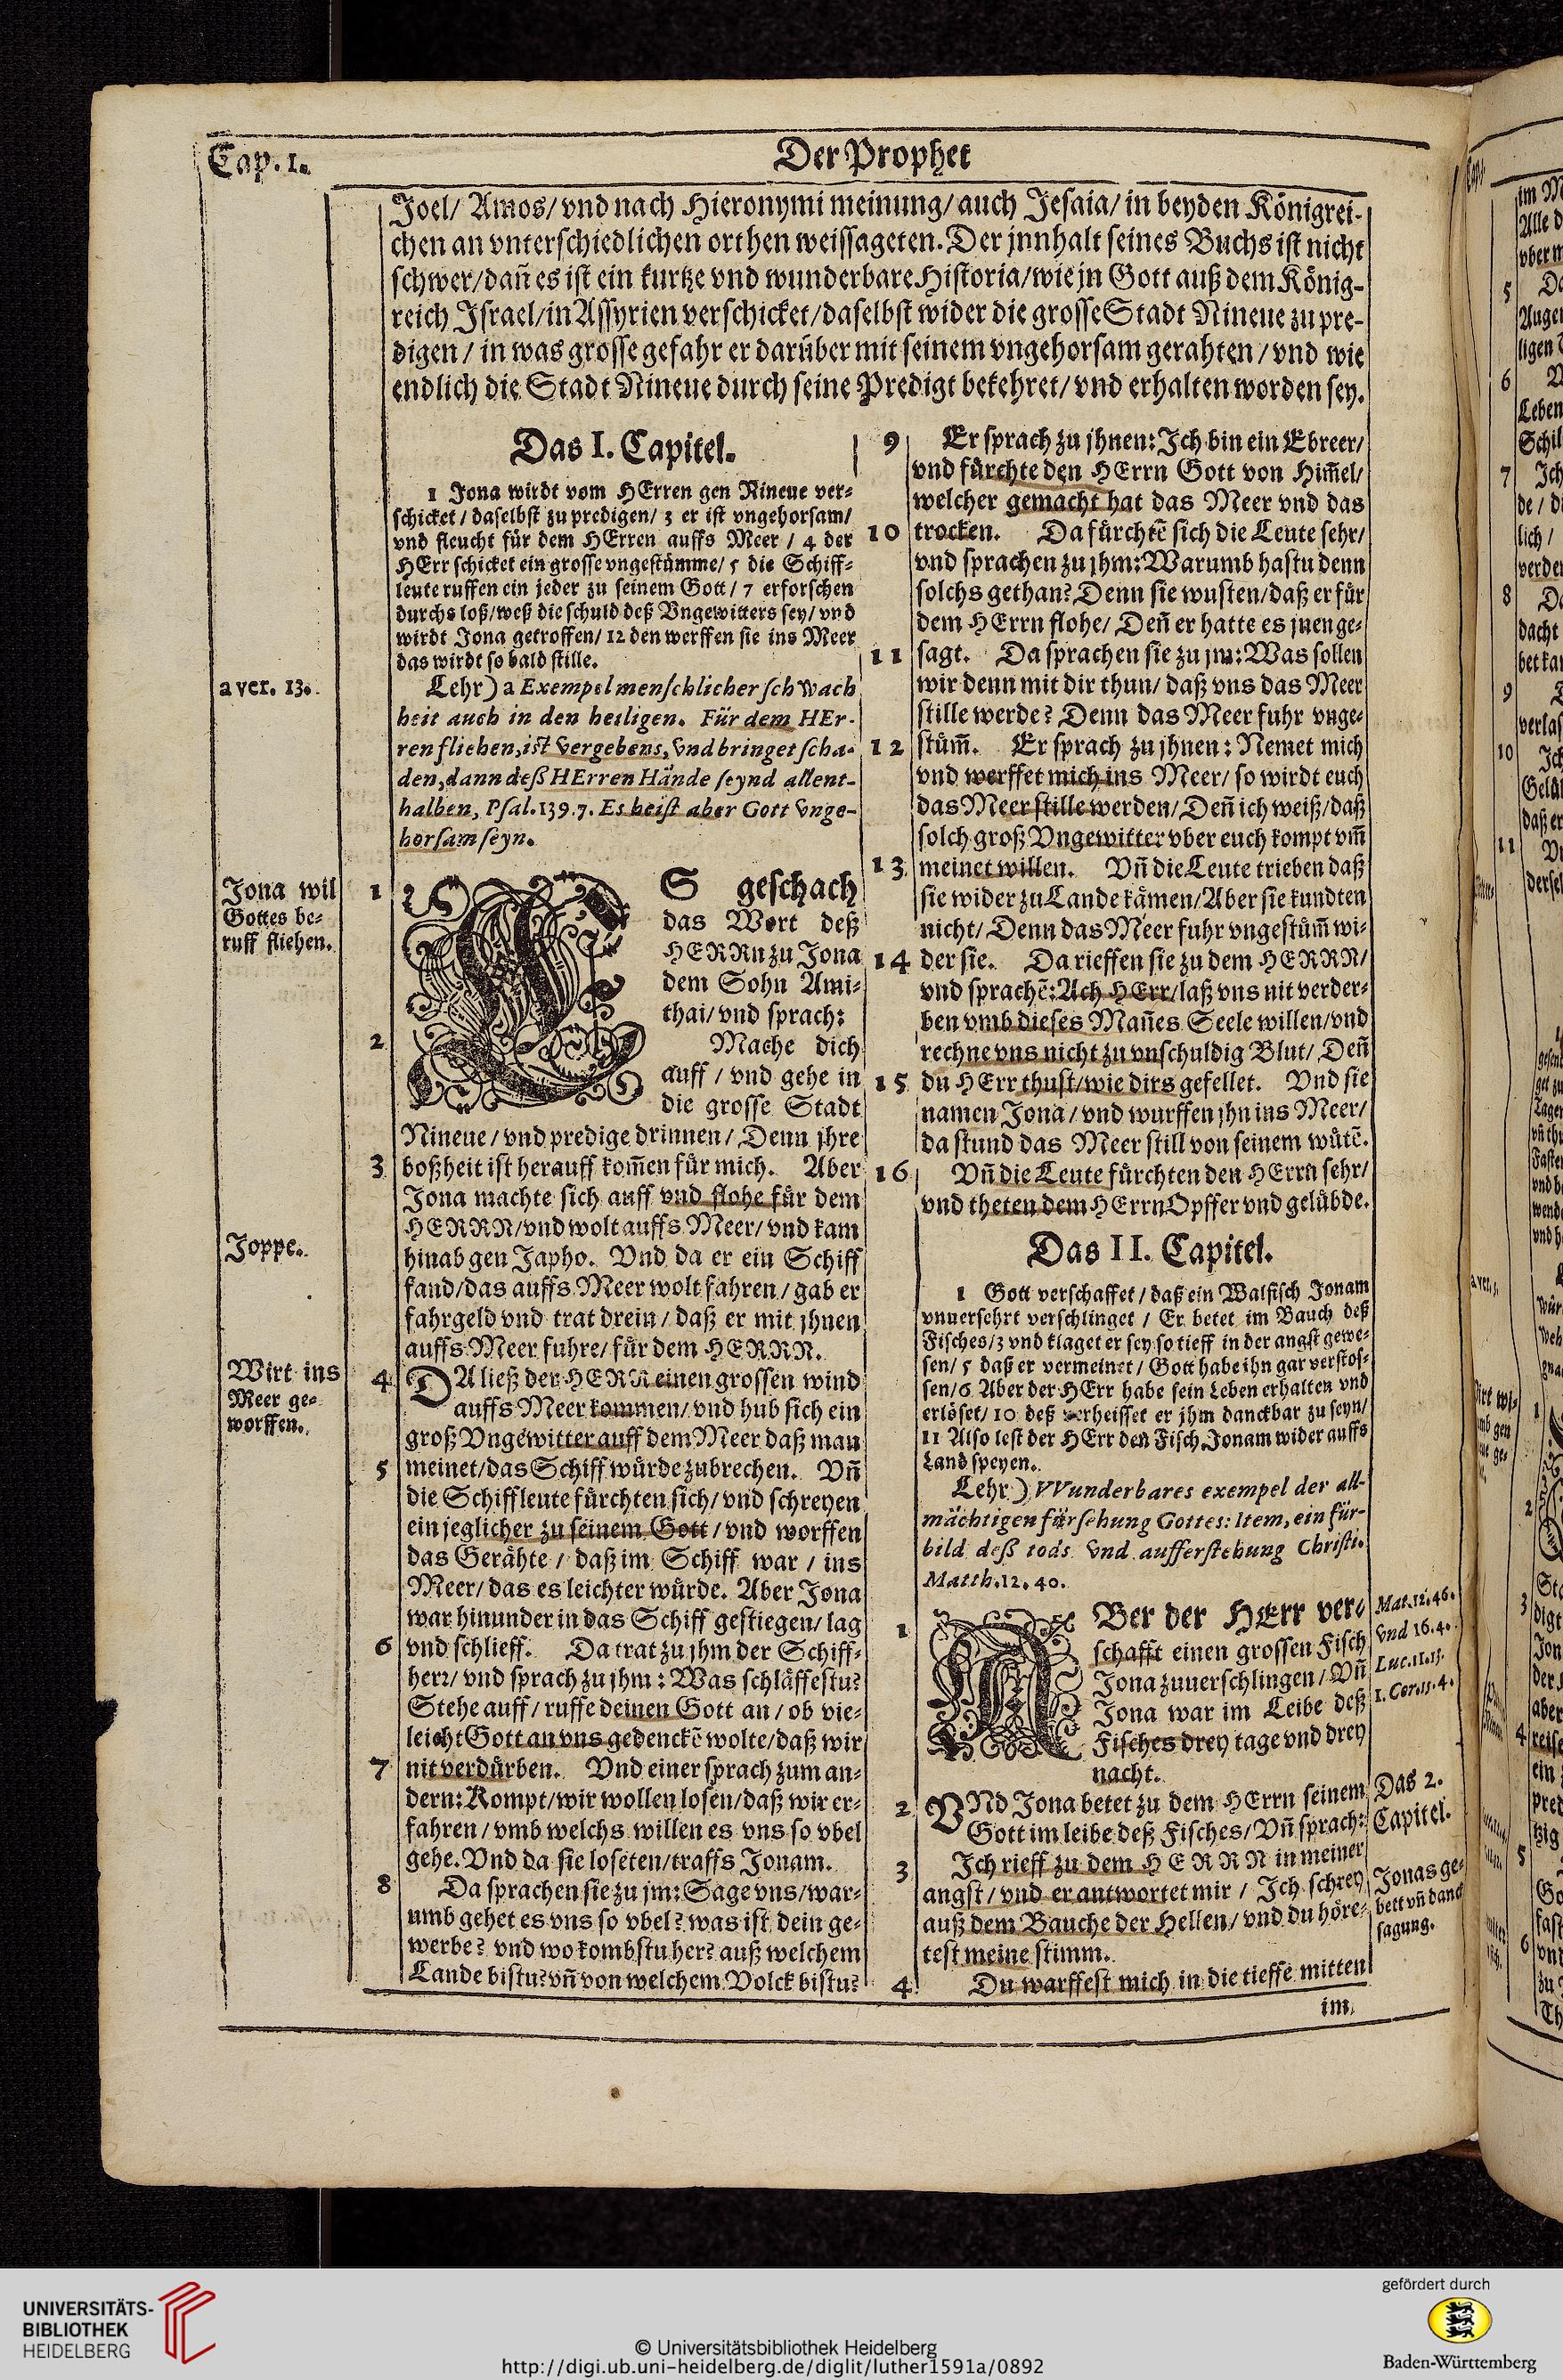 Cap. 1.
Der Prophet
Joel/ Amos/ vnd nach Hieronymi meinung/ auch Jesaia/ in beyden Königrei-
chen an vnterschiedlichen orthen weissageten. Der jnnhalt seines Buchs ist nicht
schwer/ dañ es ist ein kurtze vnd wunderbare Historia/ wie jn Gott auß dem König-
reich Israel/ in Assyrien verschicket/ daselbst wider die grosse Stadt Nineue zu pre-
digen/ in was grosse gefahr er darüber mit seinem vngehorsam gerahten/ vnd wie
endlich die Stadt Nineue durch seine Predigt bekehret/ vnd erhalten worden sey.
Das I. Capitel.
1 Jona wirdt vom HErren gen Nineue ver-
schicket/ daselbst zu predigen/ 3 er ist vngehorsam/
vnd fleucht für dem HErren auffs Meer/ 4 der
HErr schicket ein grosse vngestümme/ 5 die Schiff-
leute ruffen ein jeder zu seinem Gott/ 7 erforschen
durchs loß/ weß die schuld deß Vngewitters sey/ vnd
wirdt Jona getroffen/ 12 den werffen sie ins Meer
das wirdt so bald stille.
a ver. 13.
Lehr) a Exempel menschlicher schwach
heit auch in den heiligen. Für dem HEr-
ren fliehen, ist vergebens, vnd bringet scha-
den, dann deß HErren Hände seynd allent-
halben, Psal. 139.7. Es heist aber Gott vnge-
horsam seyn.
Jona wil
Gottes be-
ruff fliehen.
1 ES geschach
das Wort deß
HERRn zu Jona
dem Sohn Ami-
thai/ vnd sprach:
2 Mache dich
auff/ vnd gehe in
die grosse Stadt
Nineue/ vnd predige drinnen/ Denn jhre
3 boßheit ist herauff kom̃en für mich. Aber
Jona machte sich auff vnd flohe für dem
HERRN/ vnd wolt auffs Meer/ vnd kam
Joppe.
hinab gen Japho. Vnd da er ein Schiff
fand/ das auffs Meer wolt fahren/ gab er
fahrgeld vnd trat drein/ daß er mit jhnen
auffs Meer fuhre/ für dem HERRN.
Wirt ins
Meer ge-
worffen.
4 DA ließ der HERR einen grossen wind
auffs Meer kommen/ vnd hub sich ein
groß Vngewitter auff dem Meer daß man
5 meinet/ das Schiff würde zubrechen. Vñ
die Schiffleute fürchten sich/ vnd schreyen
ein jeglicher zu seinem Gott/ vnd worffen
das Gerähte/ daß im Schiff war/ ins
Meer/ das es leichter würde. Aber Jona
war hinunder in das Schiff gestiegen/ lag
6 vnd schlieff. Da trat zu jhm der Schiff-
herr/ vnd sprach zu jhm: Was schläffestu?
Stehe auff/ ruffe deinen Gott an/ ob vie-
leicht Gott an vns gedenckẽ wolte/ daß wir
7 nit verdürben. Vnd einer sprach zum an-
dern: Kompt/ wir wollen losen/ daß wir er-
fahren/ vmb welchs willen es vns so vbel
gehe. Vnd da sie loseten/ traffs Jonam.
8 Da sprachen sie zu jm: Sage vns/ war-
umb gehet es vns so vbel? was ist dein ge-
werbe? vnd wo kombstu her? auß welchem
Lande bistu? vñ von welchem Volck bistu?
9 Er sprach zu jhnen: Ich bin ein Ebreer/
vnd fürchte den HErrn Gott von Him̃el/
welcher gemacht hat das Meer vnd das
10 trocken. Da fürchtẽ sich die Leute sehr/
vnd sprachen zu jhm: Warumb hastu denn
solchs gethan? Denn sie wusten/ daß er für
dem HErrn flohe/ Deñ er hatte es jnen ge-
11 sagt. Da sprachen sie zu jm: Was sollen
wir denn mit dir thun/ daß vns das Meer
stille werde? Denn das Meer fuhr vnge-
12 stüm̃. Er sprach zu jhnen: Nemet mich
vnd werffet mich ins Meer/ so wirdt euch
das Meer stille werden/ Deñ ich weiß/ daß
solch groß Vngewitter vber euch kompt vm̃
13 meinet willen. Vñ die Leute trieben daß
sie wider zu Lande kämen/ Aber sie kundten
nicht/ Denn das Meer fuhr vngestüm̃ wi-
14 der sie. Da rieffen sie zu dem HERRN/
vnd sprachẽ: Ach HErr/ laß vns nit verder-
ben vmb dieses Mañes Seele willen/ vnd
rechne vns nicht zu vnschuldig Blut/ Deñ
15 du HErr thust/ wie dirs gefellet. Vnd sie
namen Jona/ vnd wurffen jhn ins Meer/
da stund das Meer still von seinem wütẽ.
16 Vñ die Leute fürchten den HErrn sehr/
vnd theten dem HErrn Opffer vnd gelübde.
Das II. Capitel.
1 Gott verschaffet/ daß ein Walfisch Jonam
vnuersehrt verschlinget/ Er betet im Bauch deß
Fisches/ 3 vnd klaget er sey so tieff in der angst gewe-
sen/ 5 daß er vermeinet/ Gott habe ihn gar verstos-
sen/ 6 Aber der HErr habe sein Leben erhalten vnd
erlöset/ 10 deß verheisset er jhm danckbar zu seyn/
11 Also lest der HErr den Fisch Jonam wider auffs
Land speyen.
Lehr) VVunderbares exempel der all-
mächtigen fürsehung Gottes: Item, ein für-
bild deß tods vnd aufferstehung Christi.
Matth. 12. 40.
1 ABer der HErr ver-
schafft einen grossen Fisch
Jona zuuerschlingen/ Vñ
Jona war im Leibe deß
Fisches drey tage vnd drey
nacht.
Mat. 12. 46.
vnd 16. 4.
Luc. 11.
1. Cor. 15. 4.
2 VNd Jona betet zu dem HErrn seinem
Gott im leibe deß Fisches/ Vñ sprach:
Das 2.
Capitel.
3 Ich rieff zu dem HERRN in meiner
angst/ vnd er antwortet mir/ Ich schrey
auß dem Bauche der Hellen/ vnd du höre-
test meine stimm.
Jonas ge-
bett vñ danck
sagung.
4 Du warffest mich in die tieffe mitten
im
UNIVERSITÄTS-
BIBLIOTHEK
HEIDELBERG
© Universitätsbibliothek Heidelberg
http://digi.ub.uni-heidelberg.de/diglit/luther1591a/0892
gefördert durch
Baden-Württemberg